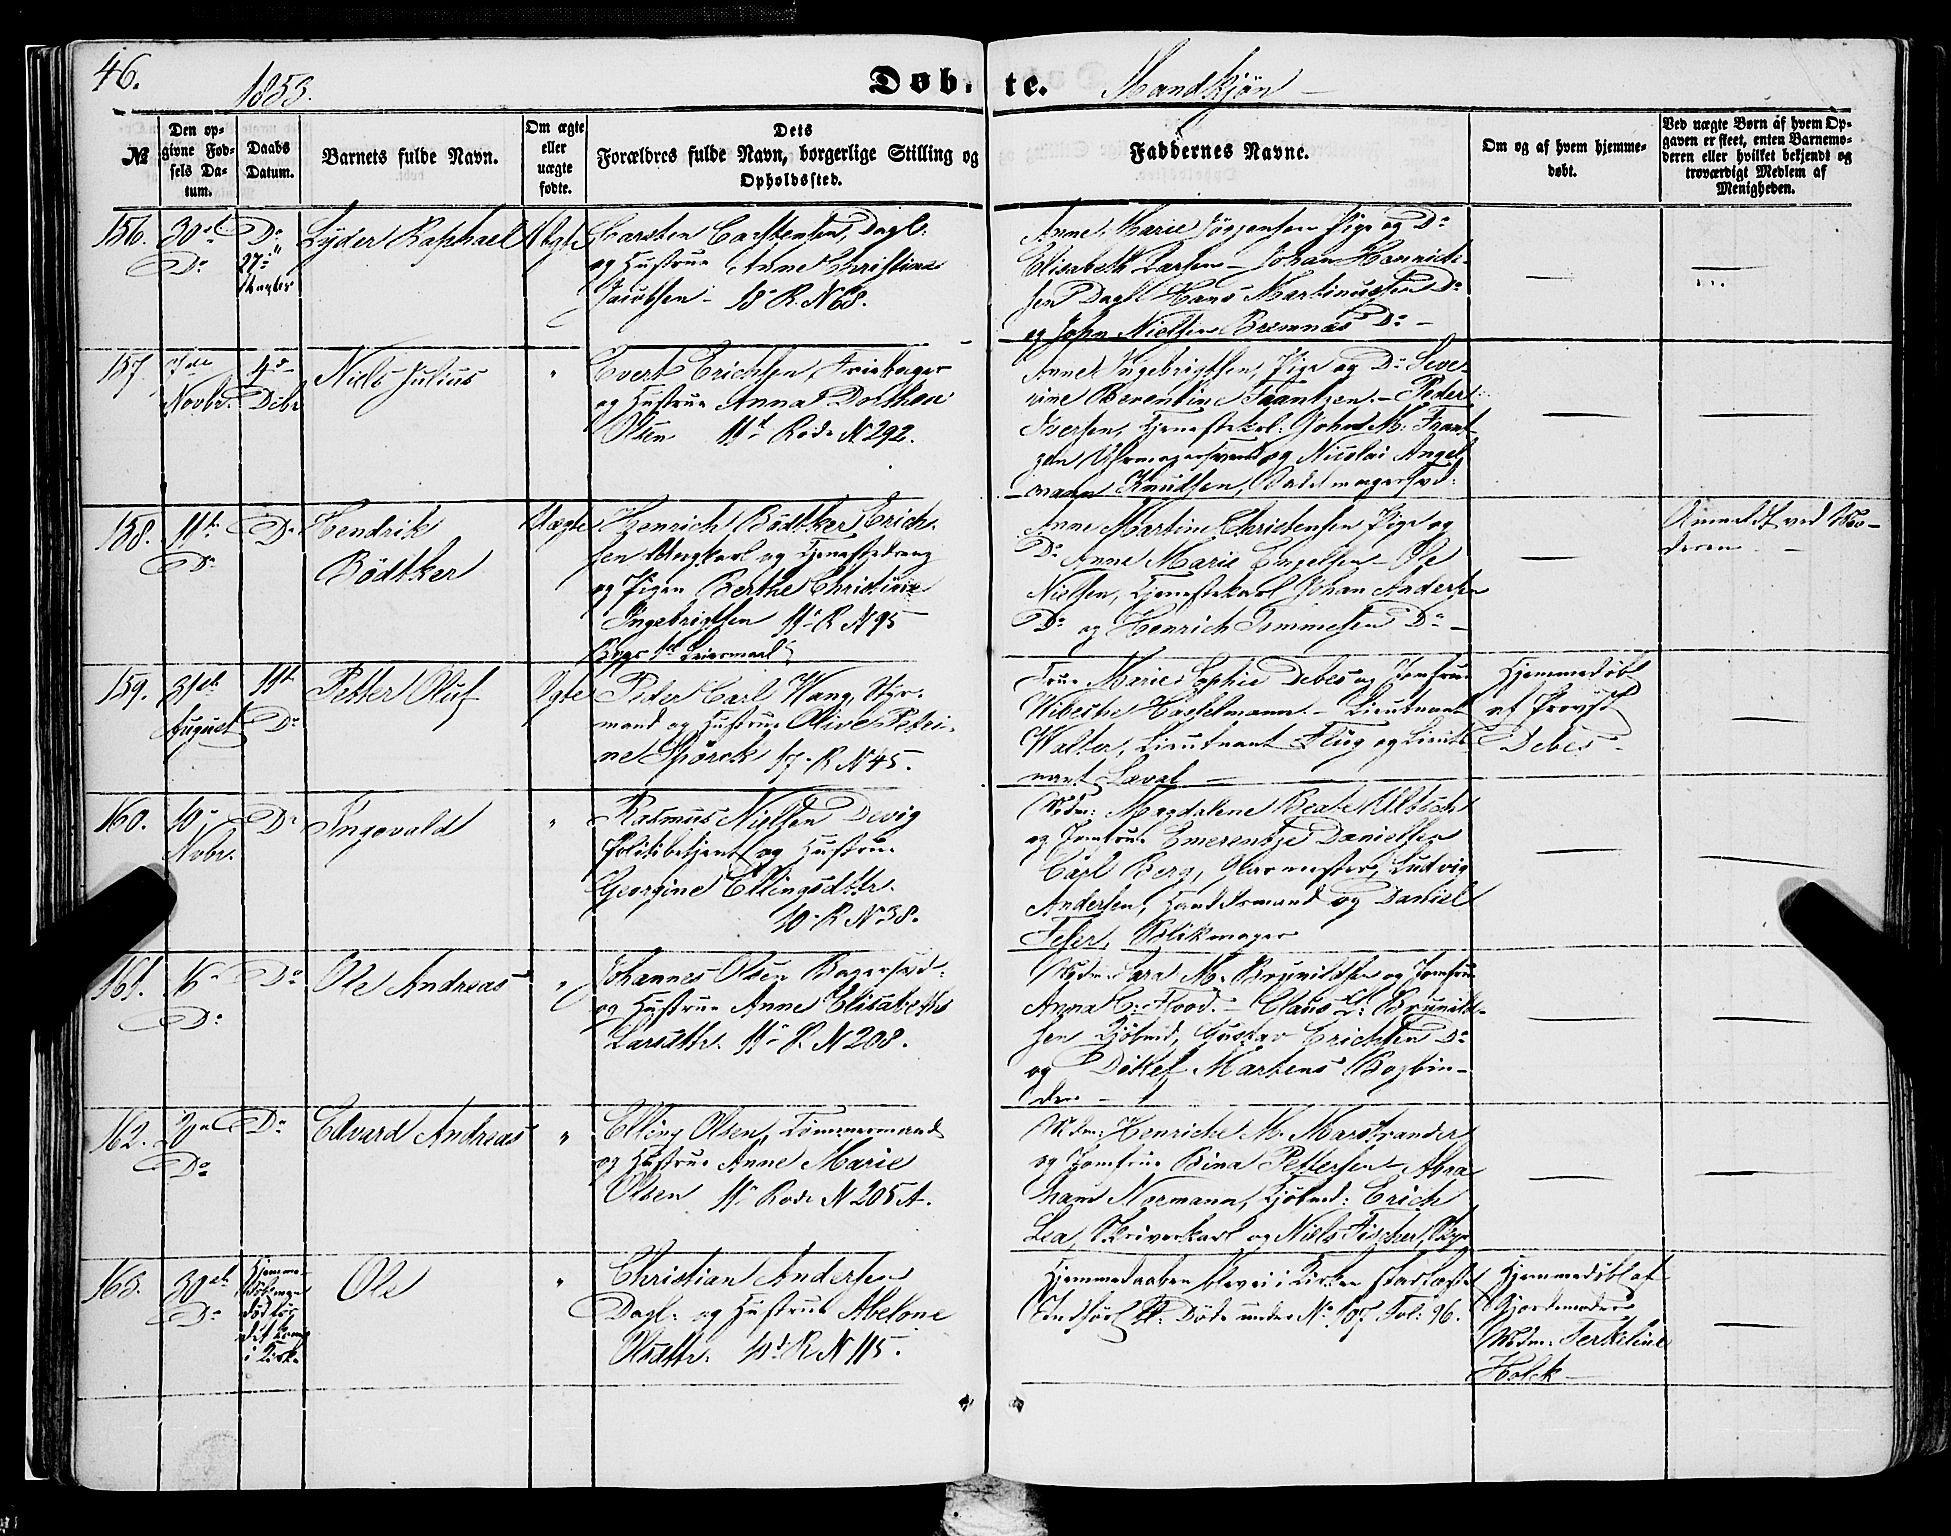 46.
1853.
Døbte.
Mandkjøn
№
Den op-
givne Fød-
sels Da-
tum.
Daabs
Datum.
Barnets fulde Navn.
Om ægte
eller
uægte
fødte.
Dets
Forældres fulde Navn, borgerlige Stilling og
Opholdssted.
Faddernes Navne.
Om og af hvem hjemme-
døbt.
Ved uægte Børn af hvem Op-
gaven er skeet, enten Barnemo-
deren eller hvilket bekjendt og
troværdigt Medlem af
Menigheden.
156. 30te Do Lyder Raphael Ægte Carsten Carstensen, Dagl.
Do 27de og Hustrue Anne Christine
18 R. N 68.
Anne Marie Jørgensen Pige og Do
Elisabeth Larsen - Johan Henrich-
sen Dagl Hans Martinussen Do
og John Nielsen Bremnæs Do -
157. Novbr. 4de Decbr Niels Julius " Evert Erichsen,
og Hustrue Anna Dorthea
Olsen 11te Rode N 292.
Anne Ingebrigtsen, Pige og Do Seve-
rine Berentine Frantzen. - Peder
Iversen, Tjenestekarl: John M. Frant-
zen, og Nicolai Angel
mann Knudsen,
158. 11te Do Do Hendrik
Bødtker
Uægte Henrich Bødtker Erich-
sen og Tjenestedreng
og Pigen Berthe Christine
Ingebrigtsen 11te R N 95
Begges 1ste Leiermaal
Anne Martine Christensen Pige og
Do Anne Marie Engelsen - Ole
Nielsen, Tjenestekarl Johan Andersen
Do og Henrich Tommesen Do -
Anmeldt ved Mo-
deren -
159. 31te August 11te Do Petter Oluf Ægte Peder Carl Wang, Styr-
mand og Hustrue Olive Petri-
ne Spørck 17- R N 45.
Frue Marie Sophie Debes og Jomfrue
Wibecke Hasselmann. - Lieutnant
Walter, Lieutnant Flug og Lieut-
nant Laval -
Hjemmedøbt
af Provst
Debes -
160. 10de Novbr. Do Ingevald " Rasmus Nielsen Devig
Politibetjent og Hustrue
Georgine Ellingsdttr.
10- R N 38.
Mdm: Magdalene Beate
og Jomfrue Emerentze Danielsen
Carl Berg, Glarmester, Ludvig
Andersen, Handelsmand og Daniel
Feser, Blikmager
161. 16de Do Do Ole Andreas " Johannes Olsen Bagersvd:
og Hustrue Anne Elisabeth
Larsdttr. 11te R. N 208.
Mdm Sara M. Brynildsen og Jomfrue
Anna C. Flood. - Claus L. Brunild-
sen Kjøbmd, Gustav Erichsen Do
og Ditlef Martens Bogbin-
der -
162. Do Do Edvard Andreas " Elling Olsen, Tømmermand
og Hustrue Anne Marie
Olsen 11te Rode N 205 A.
Mdm: Henriche M. Marstrander,
og Jomfrue Bina Pettersen - Abra
ham Normann, Kjøbmd: Erich
Lea, Skriverkarl og Niels Fischer,
163. 30te Do Hjemme-
døbt
i Kirk.
Ole " Christian Andersen
Dagl. og Hustrue Abelone
Olsdttr. 10de R N 115.
Hjemmedaaben blev ei i Kirken stadfæstet
Indført bl. Døde under No 107 Fol: 96.
Hjemmedøbt af
Gjordemoder
Mdm. Terkeline
Holck -